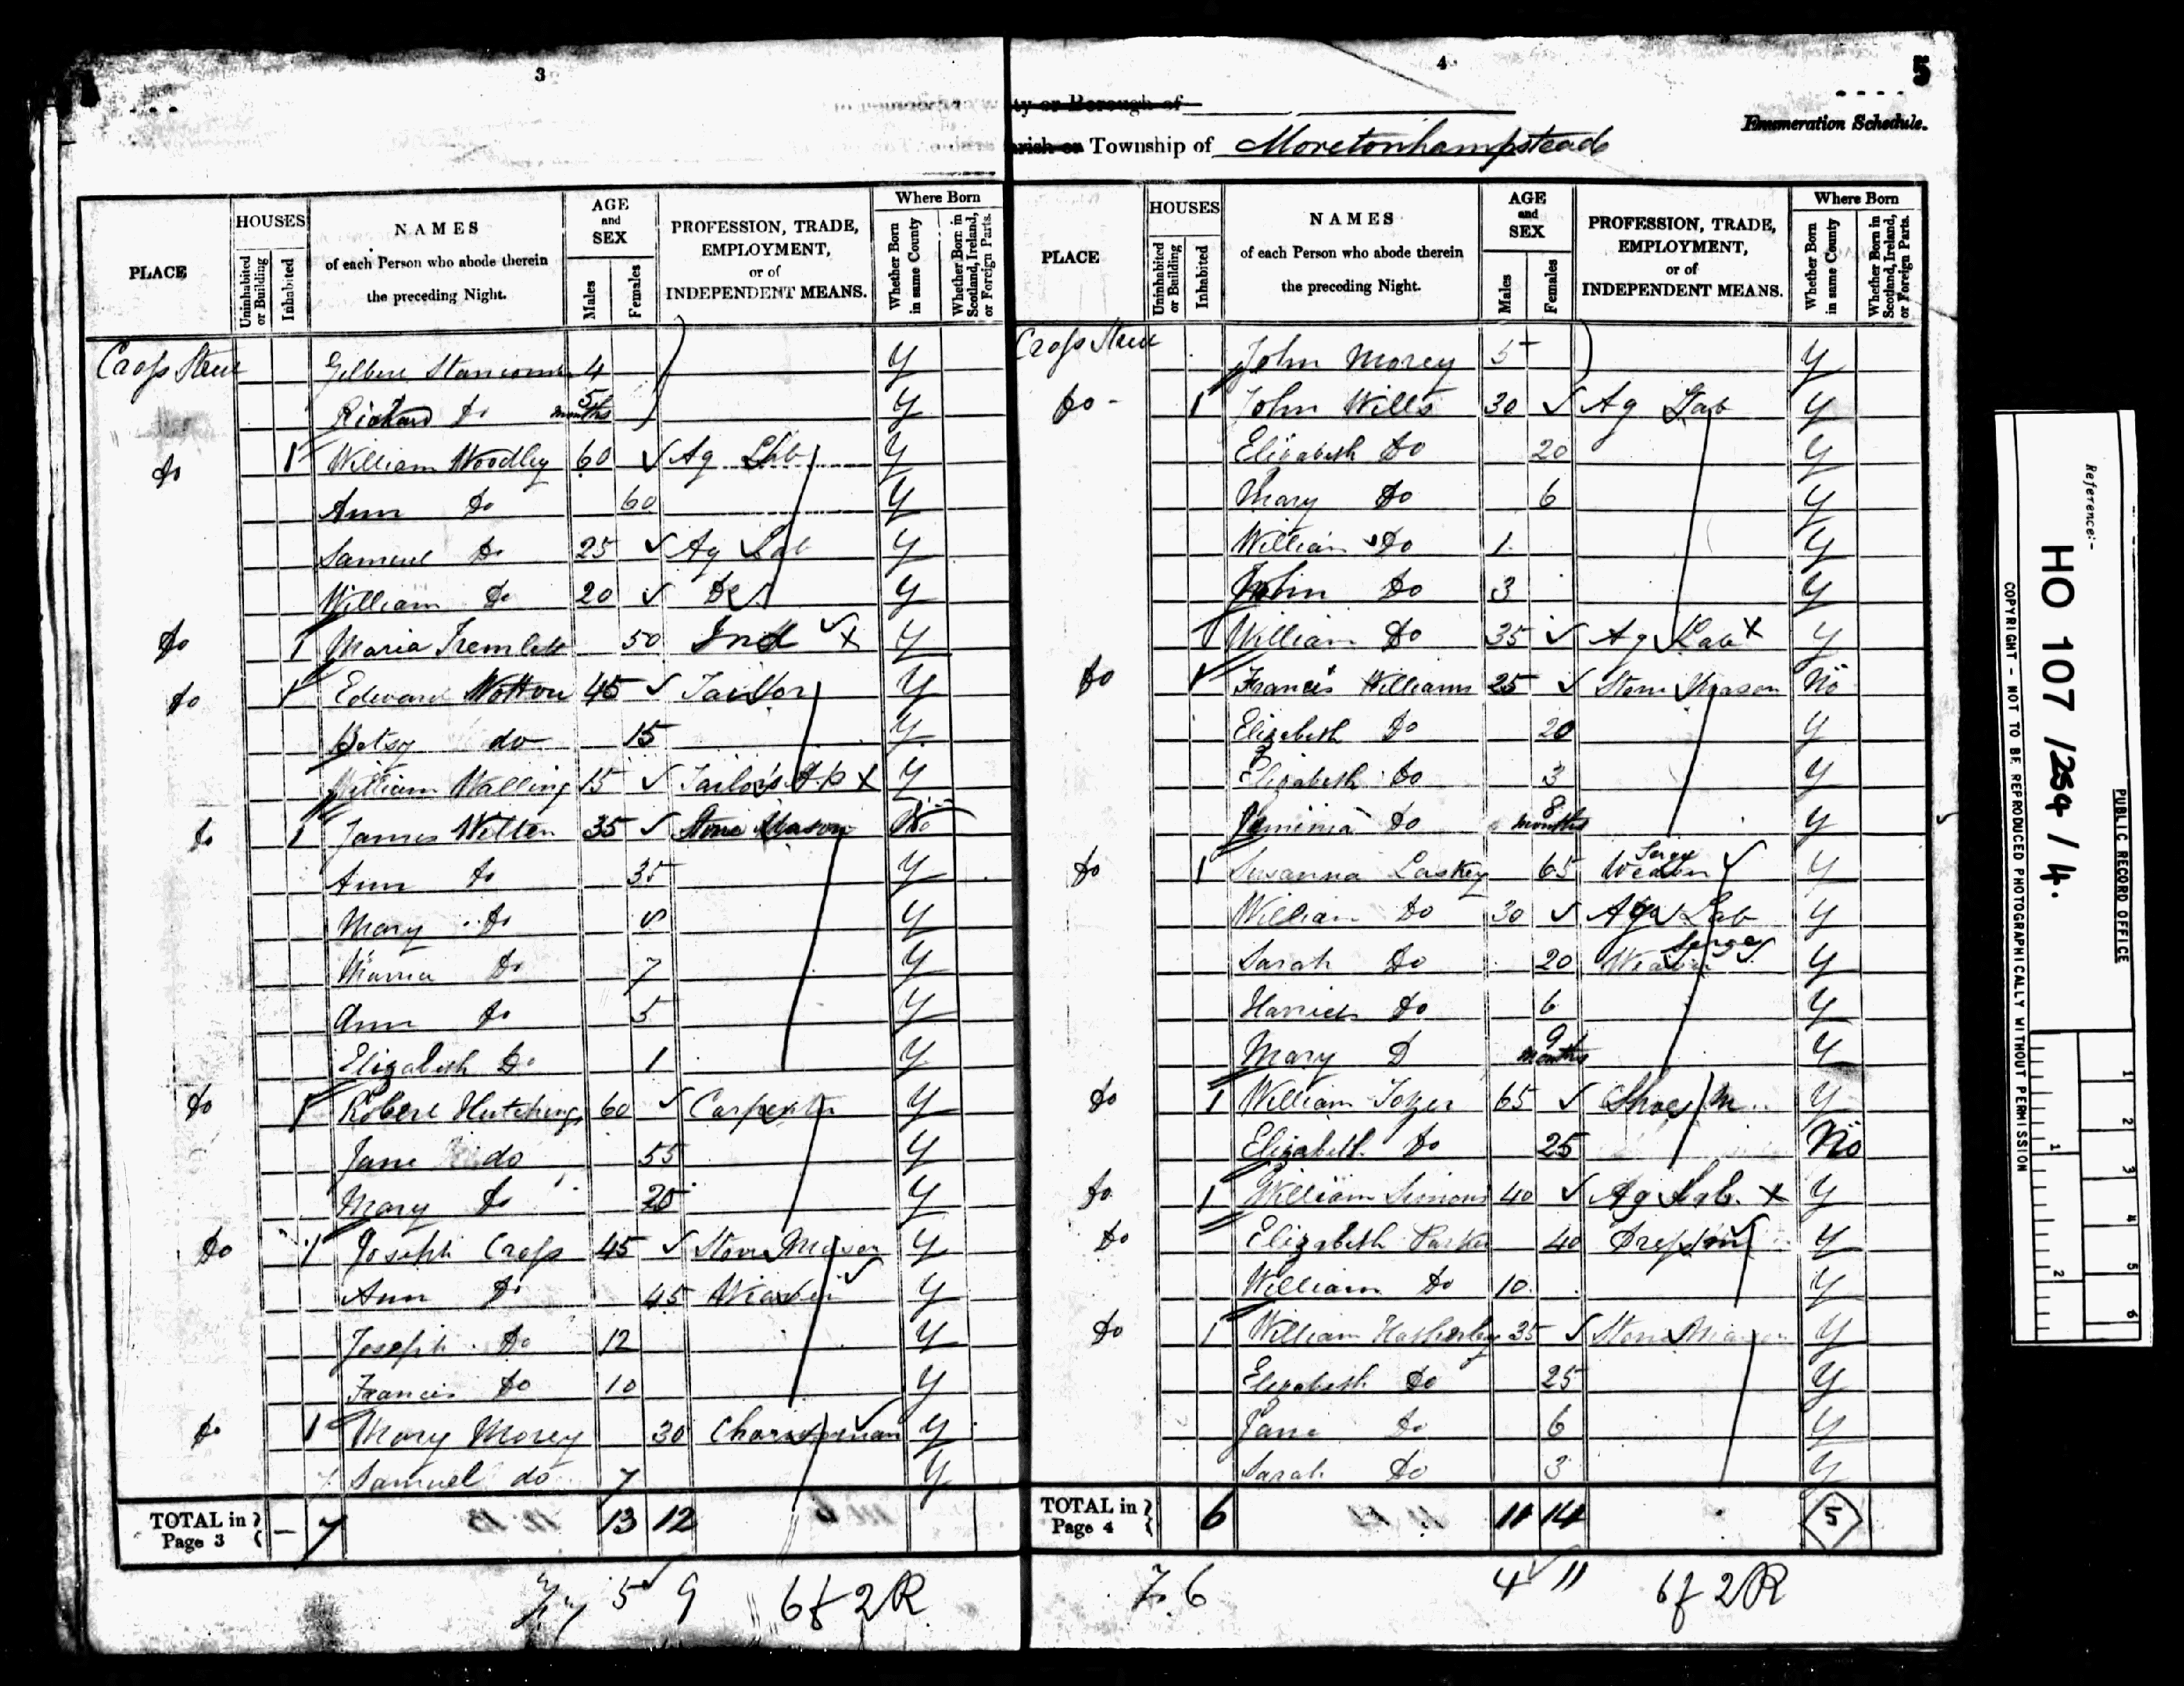 3
PLACE
HOUSES
Uninhabited or Building
Inhabited
NAMES
of each Person who abode therein
the preceding Night.
AGE
and
SEX
Males
Females
PROFESSION, TRADE,
EMPLOYMENT,
or of
INDEPENDENT MEANS.
Where Born
Whether Born in same County
Whether Born in Scotland, Ireland, or Foreign Parts.
Cross Street Gilbert Stancomb 4 Y
Richard Do 5 months Y
Do 1 William Woodley 60 Ag Lab Y
Ann Do 60 Y
Samuel Do 25 Ag Lab Y
William Do 20 Do Y
Do 1 Maria Tremlett 50 Ind Y
Do 1 Edward Wotton 45 Tailor Y
Betsy do 15 Y
William Walling 15 Tailor's Ap Y
Do 1 James Wilton 35 Stone Mason No
Ann Do 35 Y
Mary Do 8 Y
Maria Do 7 Y
Ann Do 5 Y
Elizabeth Do 1 Y
Do 1 Robert Hutchings 60 Carpenter Y
Jane do 55 Y
Mary Do 25 Y
Do 1 Joseph Cross 45 Stone Mason Y
Ann Do 45 Weaver Y
Joseph Do 12 Y
Francis Do 10 Y
Do 1 Mary Morey 30 Charwoman Y
Samuel do 7 Y
TOTAL in Page 3 — 7 13 12
5 9 6f 2R
4
5
ty or Borough of
Enumeration Schedule.
arish or Township of Moretonhampstead
PLACE
HOUSES
Uninhabited or Building
Inhabited
NAMES
of each Person who abode therein
the preceding Night.
AGE
and
SEX
Males
Females
PROFESSION, TRADE,
EMPLOYMENT,
or of
INDEPENDENT MEANS.
Where Born
Whether Born in same County
Whether Born in Scotland, Ireland, or Foreign Parts.
Cross Street John Morey 5 Y
Do 1 John Wills 30 Ag Lab Y
Elizabeth Do 20 Y
Mary Do 6 Y
William Do 1 Y
John Do 3 Y
1 William Do 35 Ag Lab Y
Do 1 Francis Williams 25 Stone Mason No
Elizabeth Do 20 Y
Elizabeth Do 3 Y
Jemima Do 8 months Y
Do 1 Susanna Laskey 65 Serge Weaver Y
William Do 30 Ag Lab Y
Sarah Do 20 Serge Weaver Y
Harriet Do 6 Y
Mary D 9 months Y
Do 1 William Tozer 65 Shoe M Y
Elizabeth Do 25 No
Do 1 William Simons 40 Ag Lab Y
Do Elizabeth Parker 40 Y
William Do 10 Y
Do 1 William Hatherley 35 Stone Mason Y
Elizabeth Do 25 Y
Jane Do 6 Y
Sarah Do 3 Y
TOTAL in Page 4 6 11 14 5
7. 6 4 11 6f 2R
Reference:-
HO 107 /254 / 4.
PUBLIC RECORD OFFICE
COPYRIGHT - NOT TO BE REPRODUCED PHOTOGRAPHICALLY WITHOUT PERMISSION
1 2 3 4 5 6
1 2